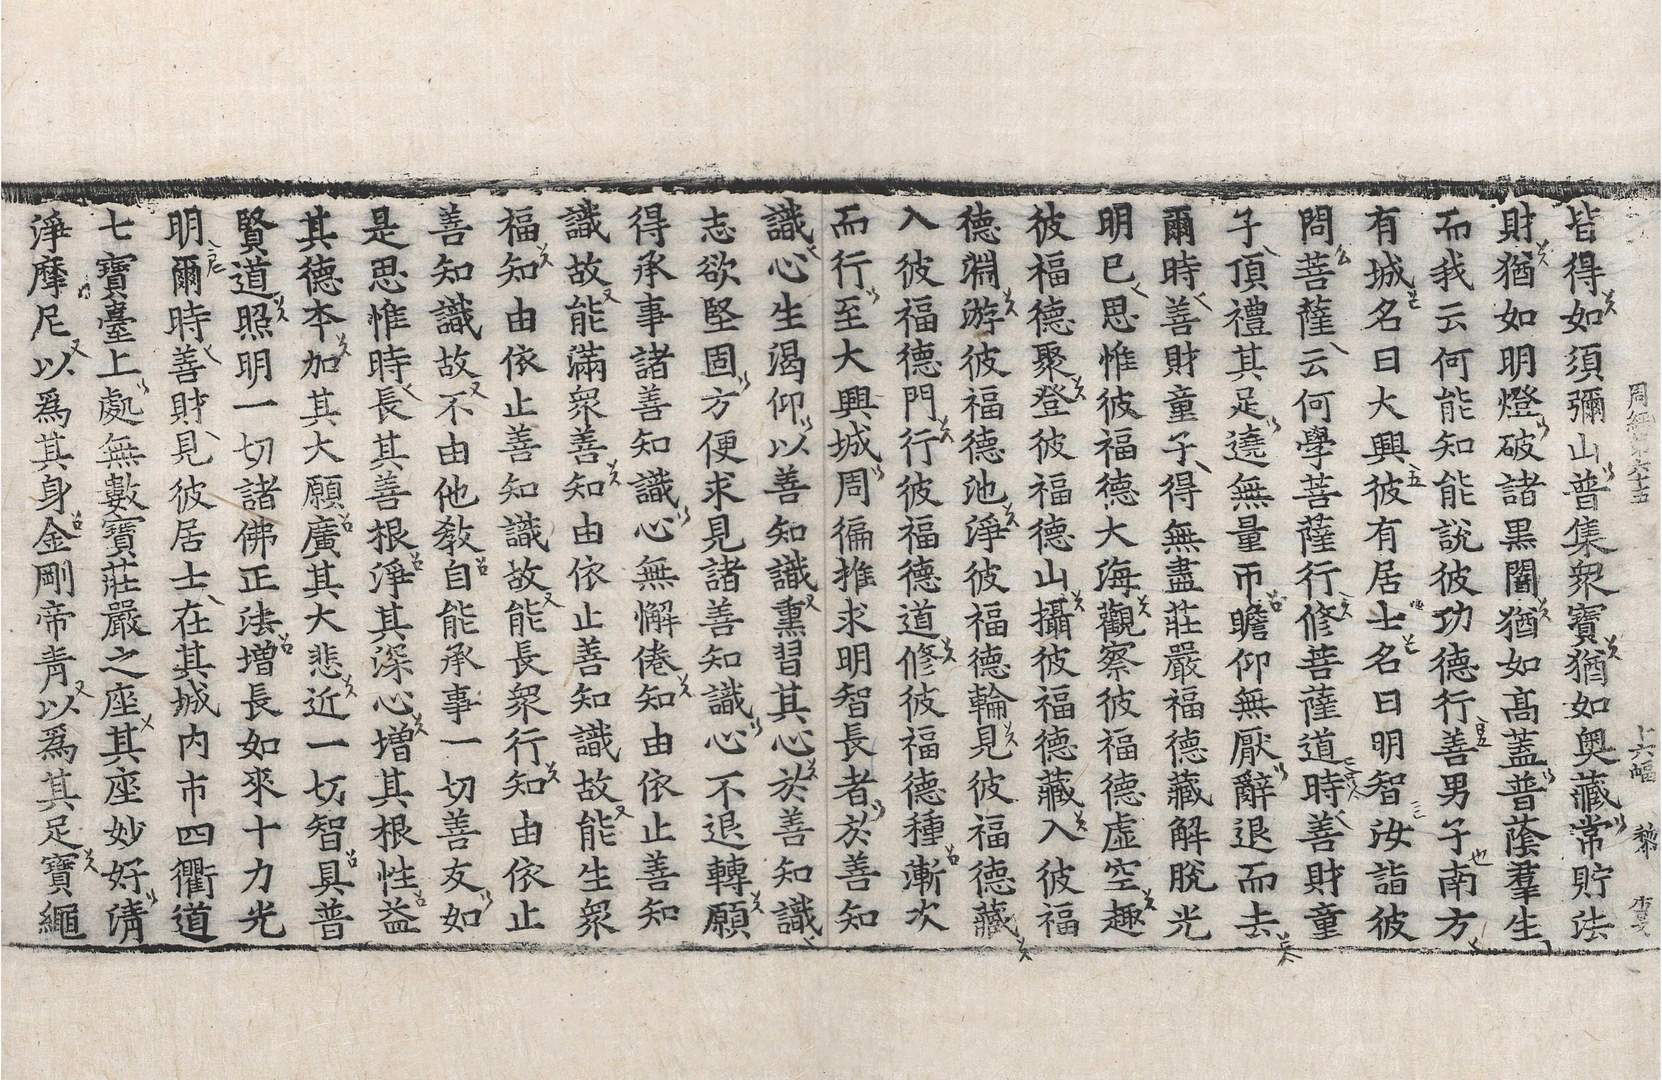 周經第六十五　十六幅　黎
皆得如須彌山普集衆寶猶如奧藏常貯法
財猶如明燈破諸黑闇猶如高蓋普蔭羣生
而我云何能知能說彼功德行善男子南方
有城名曰大興彼有居士名曰明智汝詣彼
問菩薩云何學菩薩行修菩薩道時善財童
子頂禮其足遶無量帀瞻仰無厭辭退而去
爾時善財童子得無盡莊嚴福德藏解脫光
明已思惟彼福德大海觀察彼福德虛空趣
彼福德聚登彼福德山攝彼福德藏入彼福
德淵游彼福德池淨彼福德輪見彼福德藏
入彼福德門行彼福德道修彼福德種漸次
而行至大興城周徧推求明智長者於善知
識心生渴仰以善知識熏習其心於善知識
志欲堅固方便求見諸善知識心不退轉願
得承事諸善知識心無懈倦知由依止善知
識故能滿衆善知由依止善知識故能生衆
福知由依止善知識故能長衆行知由依止
善知識故不由他教自能承事一切善友如
是思惟時長其善根淨其深心增其根性益
其德本加其大願廣其大悲近一切智具普
賢道照明一切諸佛正法增長如來十力光
明爾時善財見彼居士在其城內市四衢道
七寶臺上處無數寶莊嚴之座其座妙好清
淨摩尼以爲其身金剛帝青以爲其足寶繩